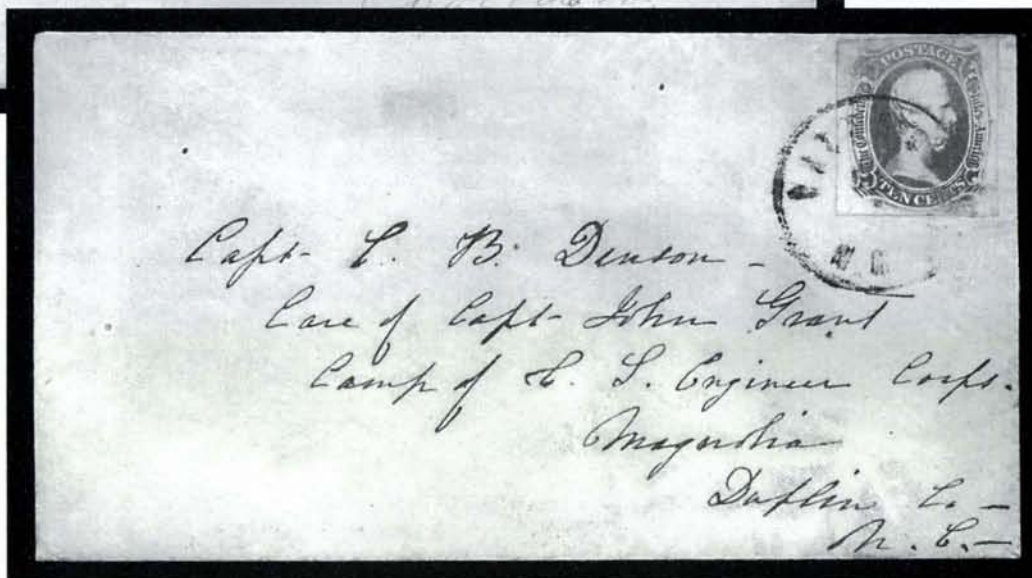 POSTAGE
TEN CENTS
Capt- C. B. Denson -
Care of Capt- John Grant
Camp of C. S. Engineer Corps.
Magnolia
Duplin Co -
N. C. -